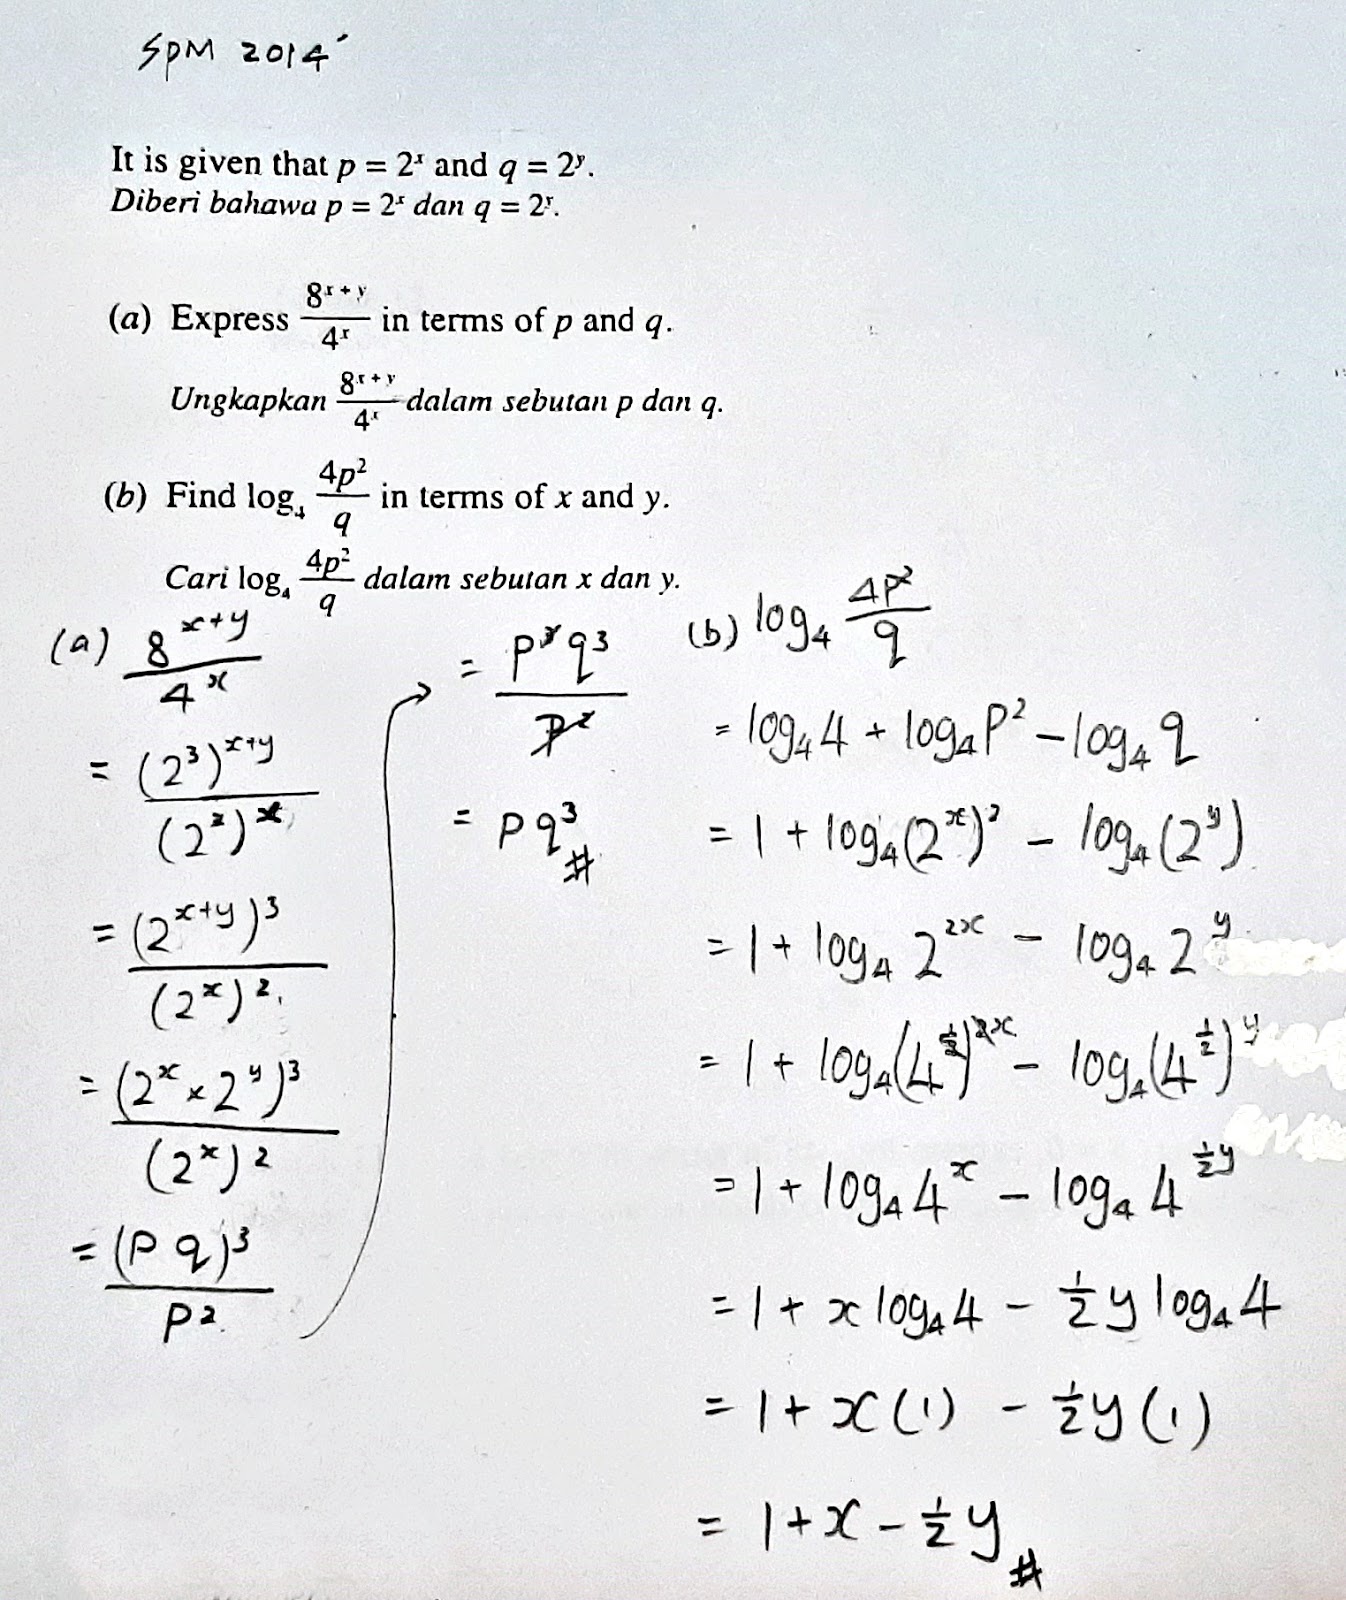 SPM 2014
It is given that p = 2ˣ and q = 2ʸ.
Diberi bahawa p = 2ˣ dan q = 2ʸ.
(a) Express 8ˣ⁺ʸ/4ˣ in terms of p and q.
Ungkapkan 8ˣ⁺ʸ/4ˣ dalam sebutan p dan q.
(b) Find log₄ 4p²/q in terms of x and y.
Cari log₄ 4p²/q dalam sebutan x dan y.
(a) 8^(x+y)/4^x
= (2³)^(x+y)/(2²)^x
= (2^(x+y))³/(2^x)²
= (2^x × 2^y)³/(2^x)²
= (pq)³/p²
= p³q³/p²
= pq³ #
(b) log₄ 4p²/q
= log₄ 4 + log₄ p² − log₄ q
= 1 + log₄ (2^x)² − log₄ (2^y)
= 1 + log₄ 2^(2x) − log₄ 2^y
= 1 + log₄ (4^(1/2))^(2x) − log₄ (4^(1/2))^y
= 1 + log₄ 4^x − log₄ 4^(1/2 y)
= 1 + x log₄ 4 − 1/2 y log₄ 4
= 1 + x(1) − 1/2 y(1)
= 1 + x − 1/2 y #